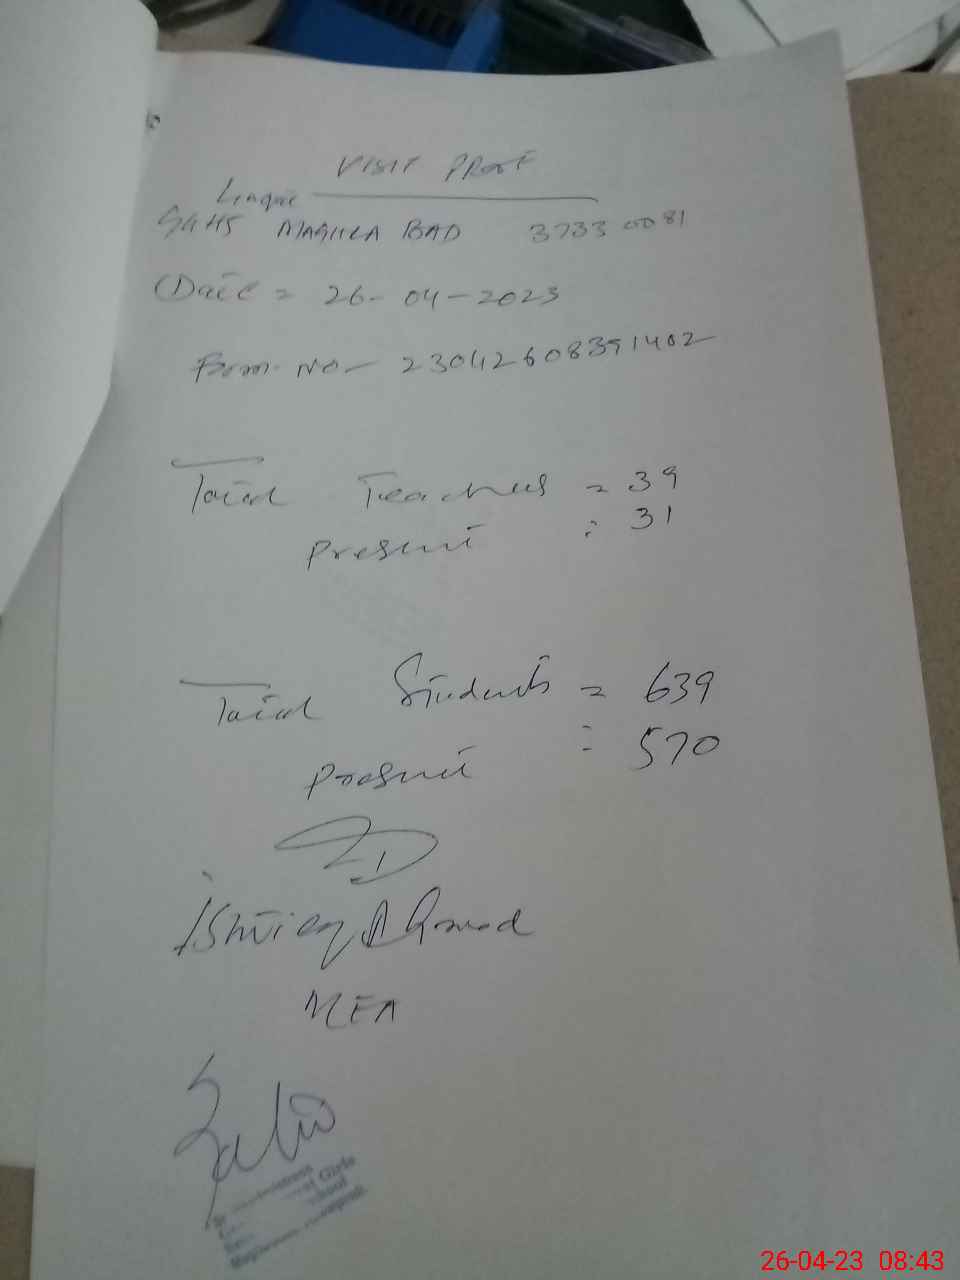 VISIT PROOF
GGHS MAQULA BAD 37330081
Date = 26-04-2023
Form. No - 23042608391402
Total Teachers = 39
Present : 31
Total Students = 639
Present : 570
Ishtiaq Ahmad
MEA
Girls
26-04-23 08:43